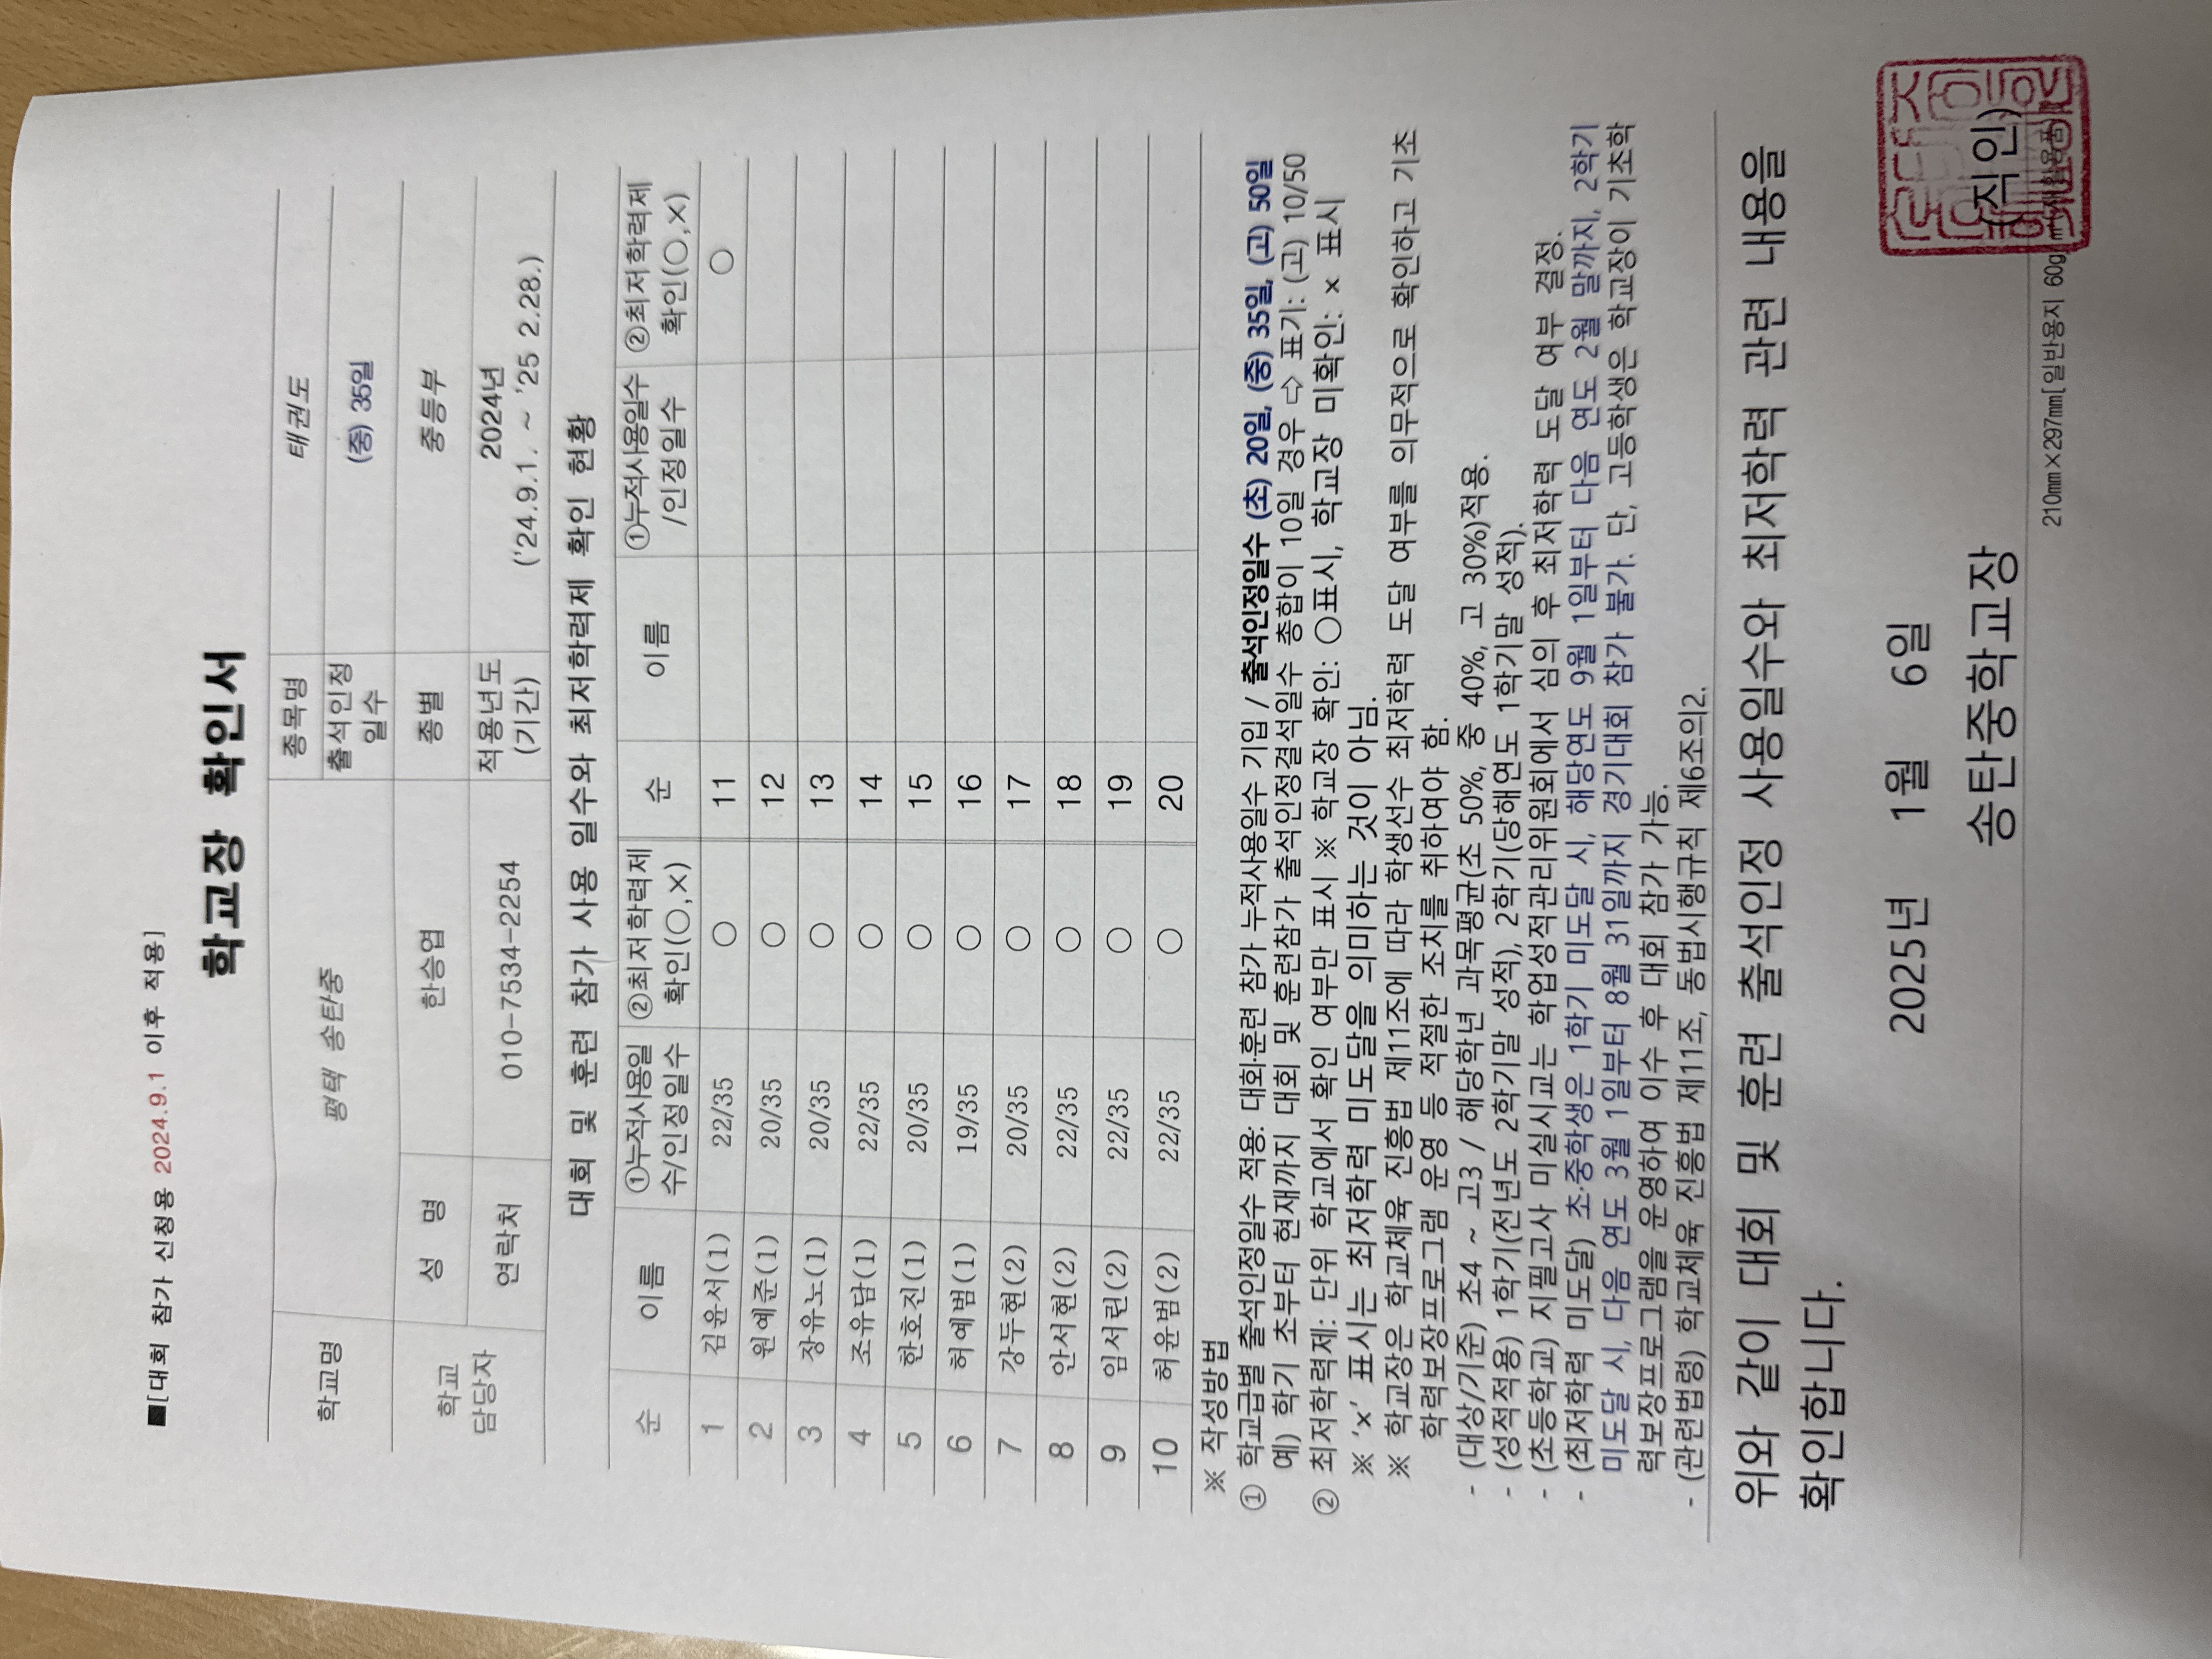 ■[대회 참가 신청용 2024.9.1 이후 적용]
학교장 확인서
학교명 평택 송탄중 종목명 태권도
출석인정 일수 (중) 35일
학교 담당자 성 명 한승엽 종별 중등부
연락처 010-7534-2254 적용년도 (기간) 2024년 ('24.9.1. ~ '25 2.28.)
대회 및 훈련 참가 사용 일수와 최저학력제 확인 현황
순 이름 ①누적사용일수/인정일수 ②최저학력제 확인(○,×) 순 이름 ①누적사용일수/인정일수 ②최저학력제 확인(○,×)
1 김윤서(1) 22/35 ○ 11 ○
2 원예준(1) 20/35 ○ 12
3 장유노(1) 20/35 ○ 13
4 조유담(1) 22/35 ○ 14
5 한호진(1) 20/35 ○ 15
6 허예범(1) 19/35 ○ 16
7 강두현(2) 20/35 ○ 17
8 안서현(2) 22/35 ○ 18
9 임서린(2) 22/35 ○ 19
10 허윤범(2) 22/35 ○ 20
※ 작성방법
① 학교급별 출석인정일수 적용: 대회·훈련 참가 누적사용일수 기입 / 출석인정일수 (초) 20일, (중) 35일, (고) 50일
예) 학기 초부터 현재까지 대회 및 훈련참가 출석인정결석일수 총합이 10일 경우 ⇨ 표기: (고) 10/50
② 최저학력제: 단위 학교에서 확인 여부만 표시 ※ 학교장 확인: ○표시, 학교장 미확인: × 표시
※ ‘x’ 표시는 최저학력 미도달을 의미하는 것이 아님.
※ 학교장은 학교체육 진흥법 제11조에 따라 학생선수 최저학력 도달 여부를 의무적으로 확인하고 기초
학력보장프로그램 운영 등 적절한 조치를 취하여야 함.
- (대상/기준) 초4 ~ 고3 / 해당학년 과목평균(초 50%, 중 40%, 고 30%)적용.
- (성적적용) 1학기(전년도 2학기말 성적), 2학기(당해연도 1학기말 성적).
- (초등학교) 지필고사 미실시교는 학업성적관리위원회에서 심의 후 최저학력 도달 여부 결정.
- (최저학력 미도달) 초·중학생은 1학기 미도달 시, 해당연도 9월 1일부터 다음 연도 2월 말까지, 2학기
미도달 시, 다음 연도 3월 1일부터 8월 31일까지 경기대회 참가 불가. 단, 고등학생은 학교장이 기초학
력보장프로그램을 운영하여 이수 후 대회 참가 가능.
- (관련법령) 학교체육 진흥법 제11조, 동법시행규칙 제6조의2.
위와 같이 대회 및 훈련 출석인정 사용일수와 최저학력 관련 내용을
확인합니다.
2025년 1월 6일
송탄중학교장 (직인)
210㎜×297㎜[일반용지 60g/㎡(재활용품)]